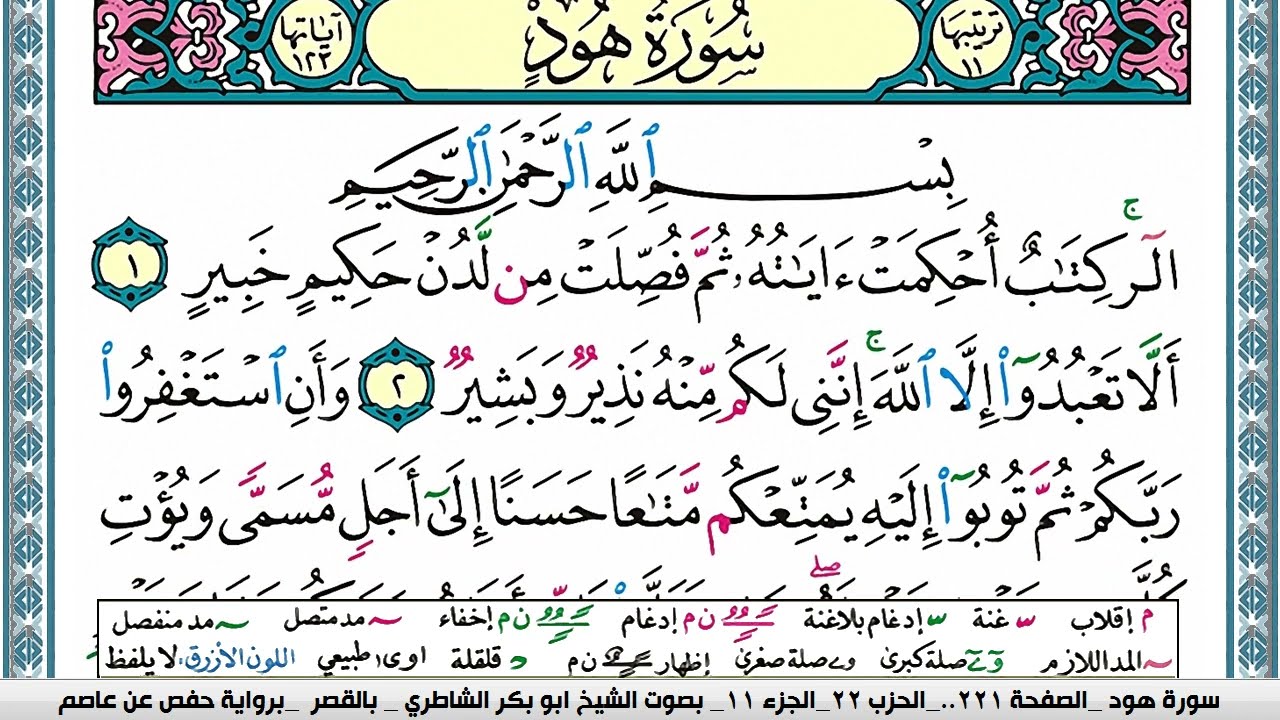 ترتيبها ١١
سُورَةُ هُودٍ
آياتها ١٢٣
بِسْمِ ٱللَّهِ ٱلرَّحْمَٰنِ ٱلرَّحِيمِ
الٓر كِتَٰبٌ أُحْكِمَتْ ءَايَٰتُهُۥ ثُمَّ فُصِّلَتْ مِن لَّدُنْ حَكِيمٍ خَبِيرٍ ١
أَلَّا تَعْبُدُوٓا۟ إِلَّا ٱللَّهَ إِنَّنِى لَكُم مِّنْهُ نَذِيرٌ وَبَشِيرٌ ٢ وَأَنِ ٱسْتَغْفِرُوا۟
رَبَّكُمْ ثُمَّ تُوبُوٓا۟ إِلَيْهِ يُمَتِّعْكُم مَّتَٰعًا حَسَنًا إِلَىٰٓ أَجَلٍ مُّسَمًّى وَيُؤْتِ
م إقلاب غنة إدغام بلاغنة ن م إدغام ن م إخفاء مد متصل مد منفصل
المد اللازم صلة كبرى صلة صغرى إظهار ن م قلقلة اوى طبيعي اللون الأزرق: لا يلفظ
سورة هود _الصفحة ٢٢١.._الحزب ٢٢_الجزء ١١_ بصوت الشيخ ابو بكر الشاطري _ بالقصر _برواية حفص عن عاصم